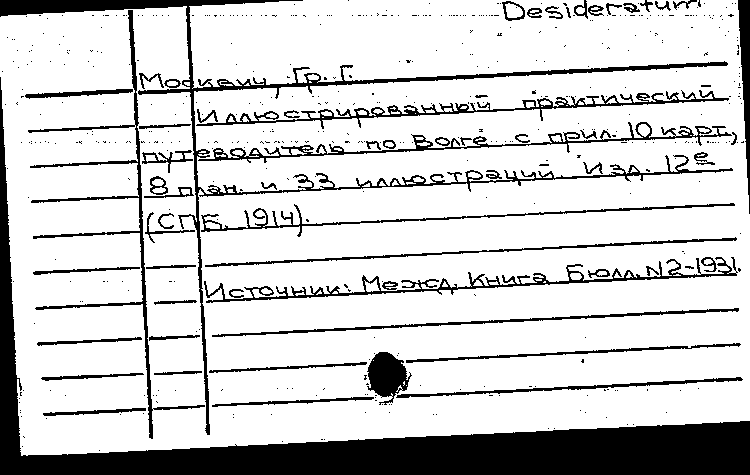 Desideratum
Москвич, Гр. Г.
Иллюстрированный практический
путеводитель по Волге с прил. 10 карт,
8 план. и 33 иллюстраций. Изд. 12е
(СПБ. 1914).
Источник: Межд. Книга Бюлл. N2-1931.